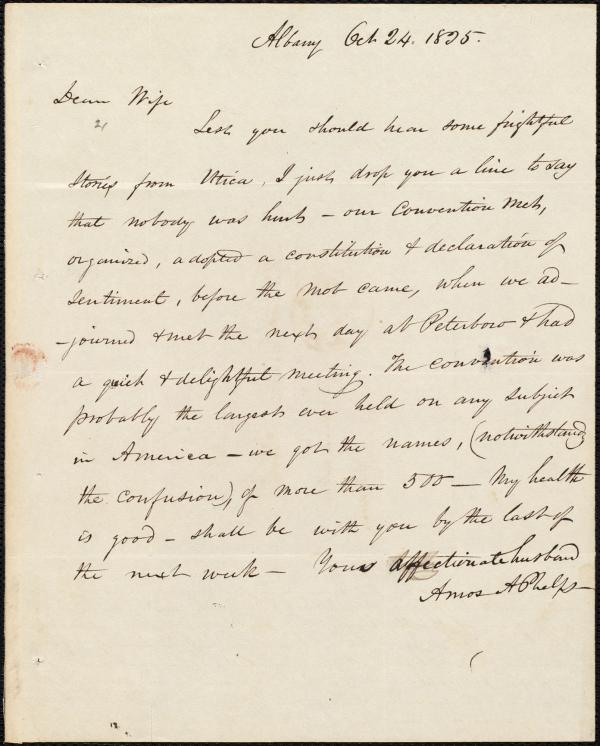 Albany Oct. 24. 1835.
Dear Wife
Lest you should hear some frightful
stories from Utica, I just drop you a line to say
that nobody was hurt – our Convention met,
organized, adopted a constitution & declaration of
sentiment, before the mob came, when we ad-
-journd & met the next day at Peterboro & had
a quiet & delightful meeting. The convention was
probably the largest ever held on any subject
in America – we got the names, (notwithstandg
the confusion), of more than 500 – My health
is good – shall be with you by the last of
the next week – Your affectionate husband
Amos A Phelps –